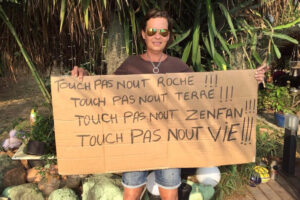 TOUCH PAS NOUT ROCHE !!!
TOUCH PAS NOUT TERRE !!!
TOUCH PAS NOUT ZENFAN !!!
TOUCH PAS NOUT VIE !!!